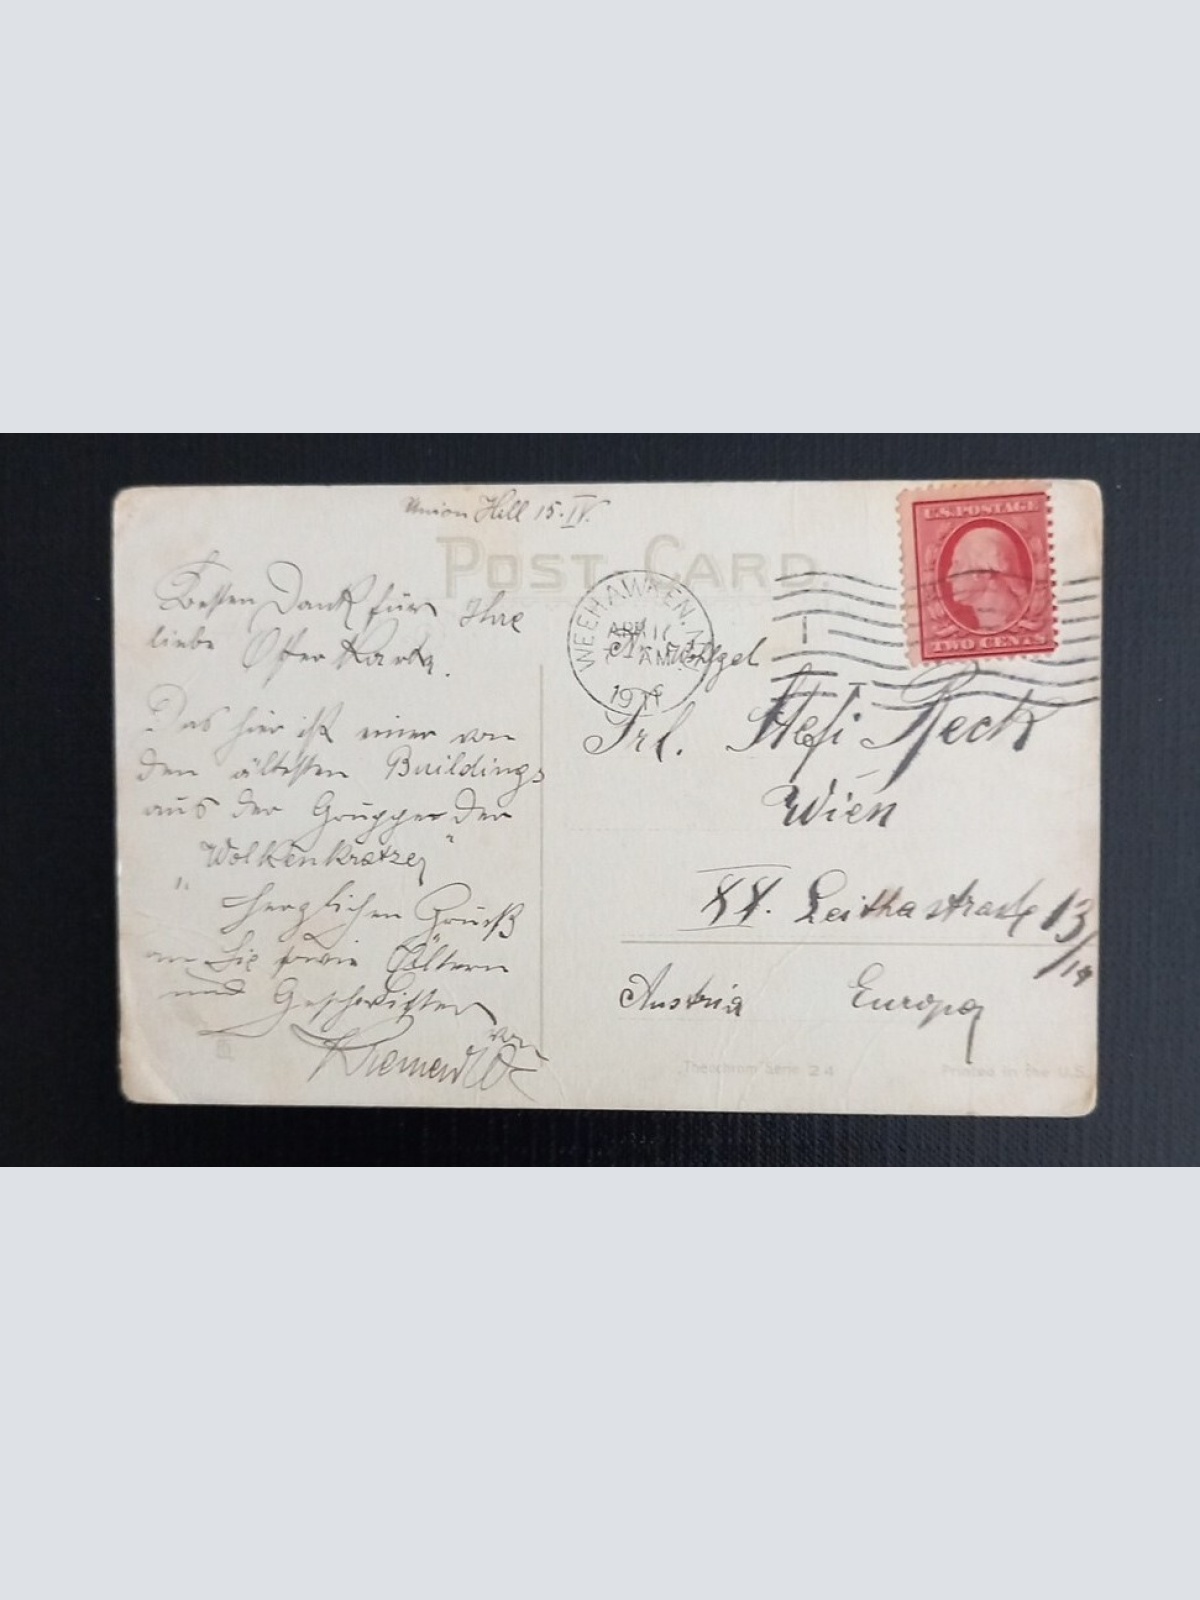 Union Hill 15.IV.
POST CARD
Besten Dank für Ihre
liebe Osterkarte.
Das hier ist einer von
den ältesten Buildings
aus der Gruppe der
"Wolkenkratzer"
Herzlichen Gruß
an Sie sowie Eltern
und Geschwister
von
WEEHAWKEN, N.J.
APR 17
AM
U.S. POSTAGE
TWO CENTS
Frl. Stefi Reck
Wien
XX. Leithastraße 13/14
Austria Europa
Theochrom Serie 24
Printed in the U.S.